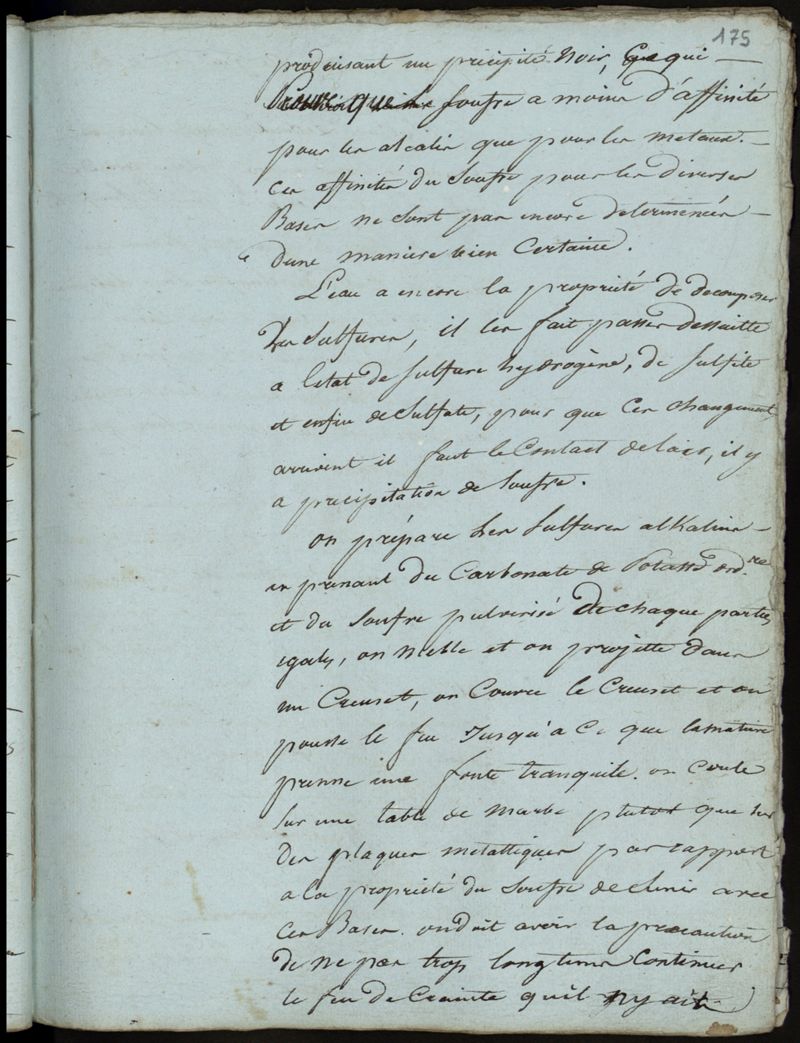 175
produisant un précipité noir, Ce qui
prouve que le soufre a moins d'affinité
pour les alcalis que pour les metaux.
Ces affinités du soufre pour les diverses
Bases ne sont pas encore determinées
dune maniere bien Certaine.
L'eau a encore la propriété de decomposer
Les sulfures, il les fait passer dessuitte
a letat de sulfure hydrogène, de sulfite
et enfin de sulfate, pour que Ces changements
arrivent il faut le Contact de lair, il y
a precipitation de soufre.
on prépare les sulfures alkalins
en prenant du Carbonate de Potasse ord.re
et du soufre pulverisé de chaque parties
egales, on mele et on projette dans
un Creuset, on Couvre le Creuset et on
pousse le feu Jusqu'a Ce que la matiere
prenne une fonte tranquile. on coule
sur une table de marbre plutot que sur
des plaques metalliques par rapport
a la propriété du soufre de sunir avec
Ces Bases. on doit avoir la precaution
de ne pas trop longtems Continuer
le feu de Crainte quil ny ait